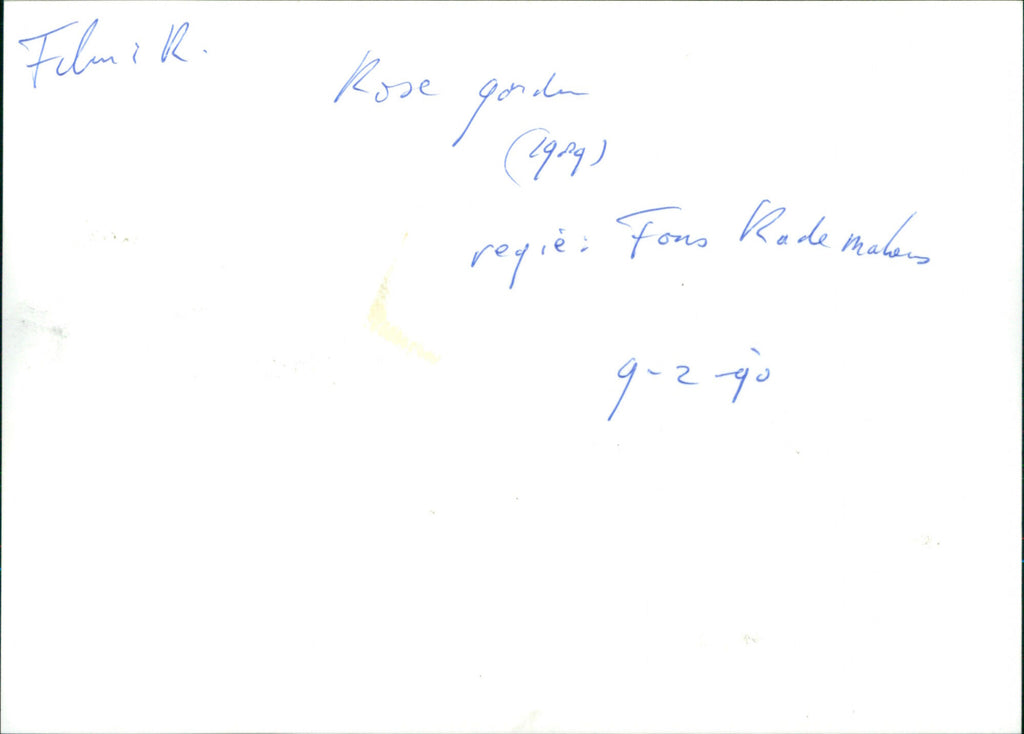 Film: R.
Rose garden
(1989)
regie: Fons Rademakers
9-2-90